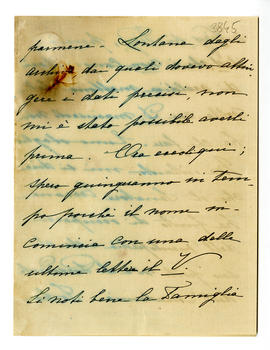 3845
permene. Lontana dagli
archivi da quali dovevo attin-
gere i dati precisi, non
mi è stato possibile averli
prima. Ora eccoli qui;
spero giungeranno in tem-
po poichè il nome in-
comincia con una delle
ultime lettere il V.
Si noti bene la Famiglia